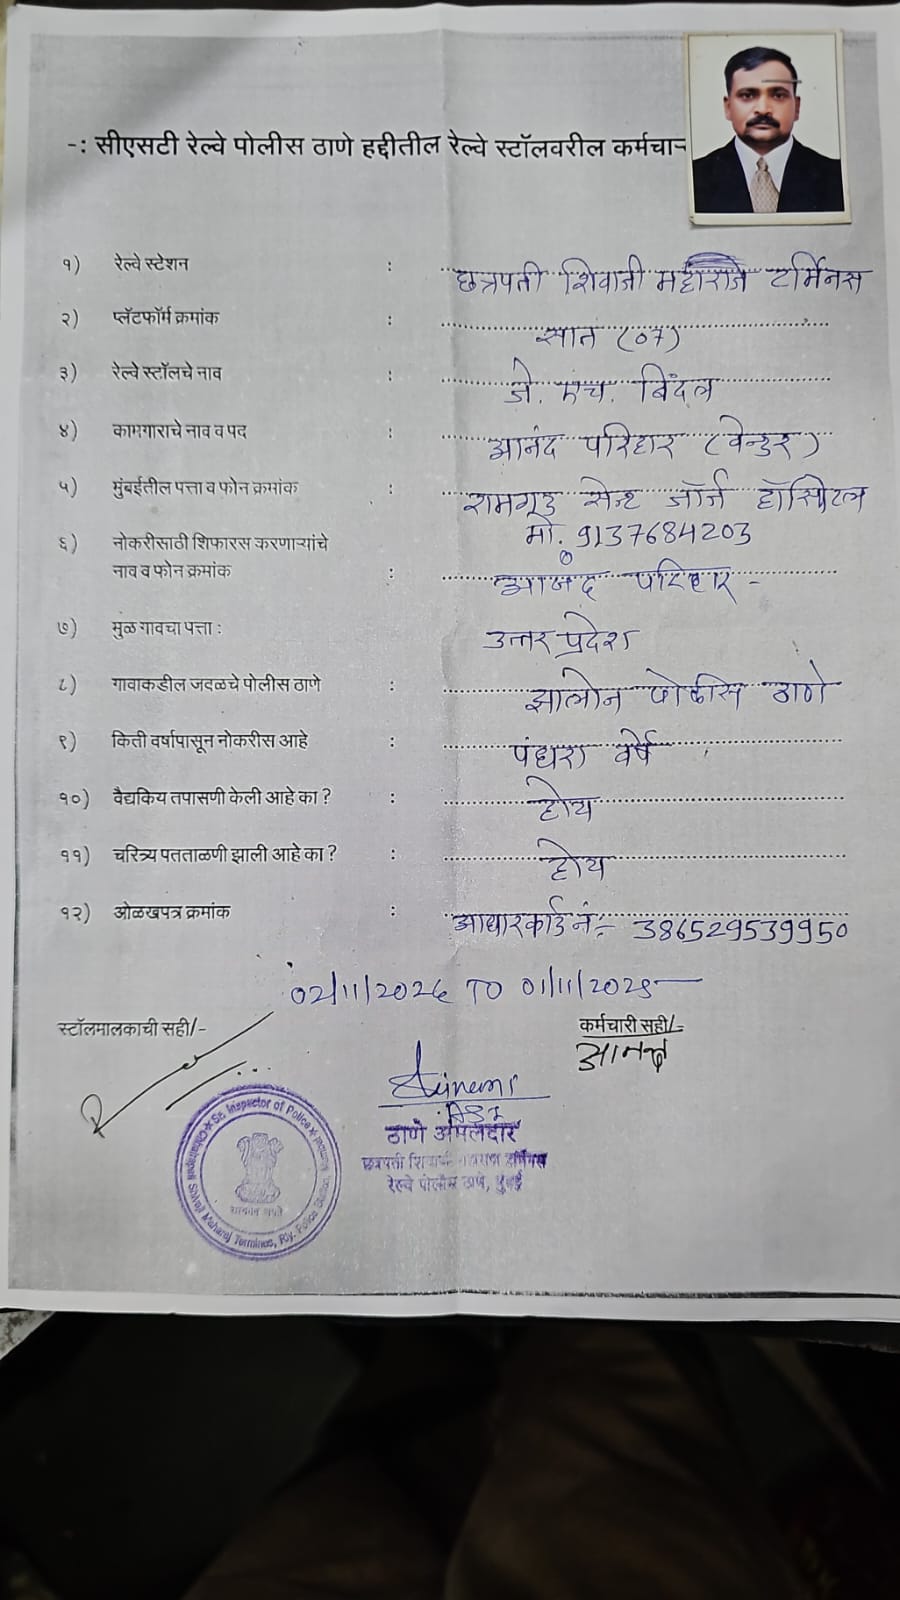 -: सीएसटी रेल्वे पोलीस ठाणे हद्दीतील रेल्वे स्टॉलवरील कर्मचा
१) रेल्वे स्टेशन : छत्रपती शिवाजी महाराज टर्मिनस
२) प्लॅटफॉर्म क्रमांक : सात (०७)
३) रेल्वे स्टॉलचे नाव : जे. एच. बिंदल
४) कामगाराचे नाव व पद : आनंद परिहार (वेन्डर)
५) मुंबईतील पत्ता व फोन क्रमांक : सेन्ट जॉर्ज हॉस्पिटल
मो. 9137684203
६) नोकरीसाठी शिफारस करणाऱ्यांचे
नाव व फोन क्रमांक : आनंद परिहार -
७) मुळ गावचा पत्ता : उत्तर प्रदेश
८) गावाकडील जवळचे पोलीस ठाणे : झालोन पोलीस ठाणे
९) किती वर्षापासून नोकरीस आहे : पंधरा वर्षे
१०) वैद्यकिय तपासणी केली आहे का ? : होय
११) चरित्र्य पतताळणी झाली आहे का ? : होय
१२) ओळखपत्र क्रमांक : आधारकार्ड नं:- 386529539950
02/11/2024 TO 01/11/2025
स्टॉलमालकाची सही/- कर्मचारी सही/-
आनन्द
ASI
ठाणे अंमलदार
छत्रपती शिवाजी महाराज टर्मिनस
रेल्वे पोलीस ठाणे, मुंबई
Sr. Inspector of Police
Chhatrapati Shivaji Maharaj Terminus, Rly. Police Station
सत्यमेव जयते